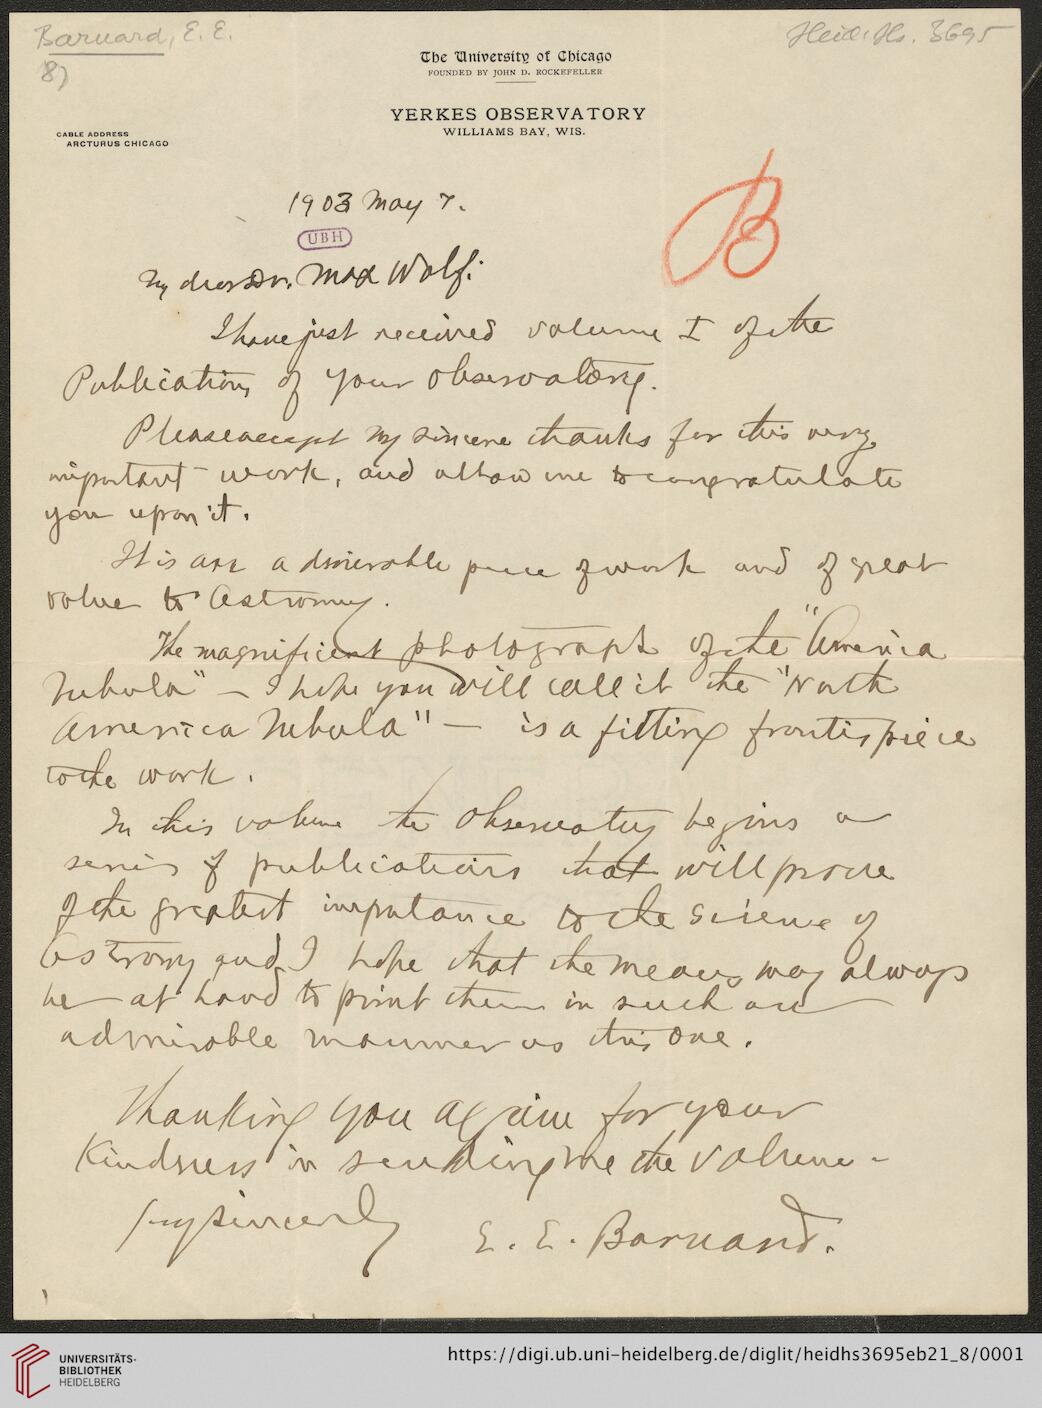 Barnard, E. E.
8)
Heid. Hs. 3695
The University of Chicago
FOUNDED BY JOHN D. ROCKEFELLER
YERKES OBSERVATORY
WILLIAMS BAY, WIS.
CABLE ADDRESS
ARCTURUS CHICAGO
B
1903 May 7.
UBH
My dear Dr. Max Wolf:
I have just received volume I of the
Publications of your Observatory.
Please accept my sincere thanks for this very
important work, and allow me to congratulate
you upon it.
It is an admirable piece of work and of great
value to Astronomy.
The magnificent photograph of the "America
Nebula" — I hope you will call it the "North
America Nebula" — is a fitting frontispiece
to the work.
In this volume the Observatory begins a
series of publications that will prove
of the greatest importance to the science of
Astronomy and I hope that the means may always
be at hand to print them in such an
admirable manner as this one.
Thanking you again for your
kindness in sending me the volume -
sincerely
E. E. Barnard.
UNIVERSITÄTS-
BIBLIOTHEK
HEIDELBERG
https://digi.ub.uni-heidelberg.de/diglit/heidhs3695eb21_8/0001